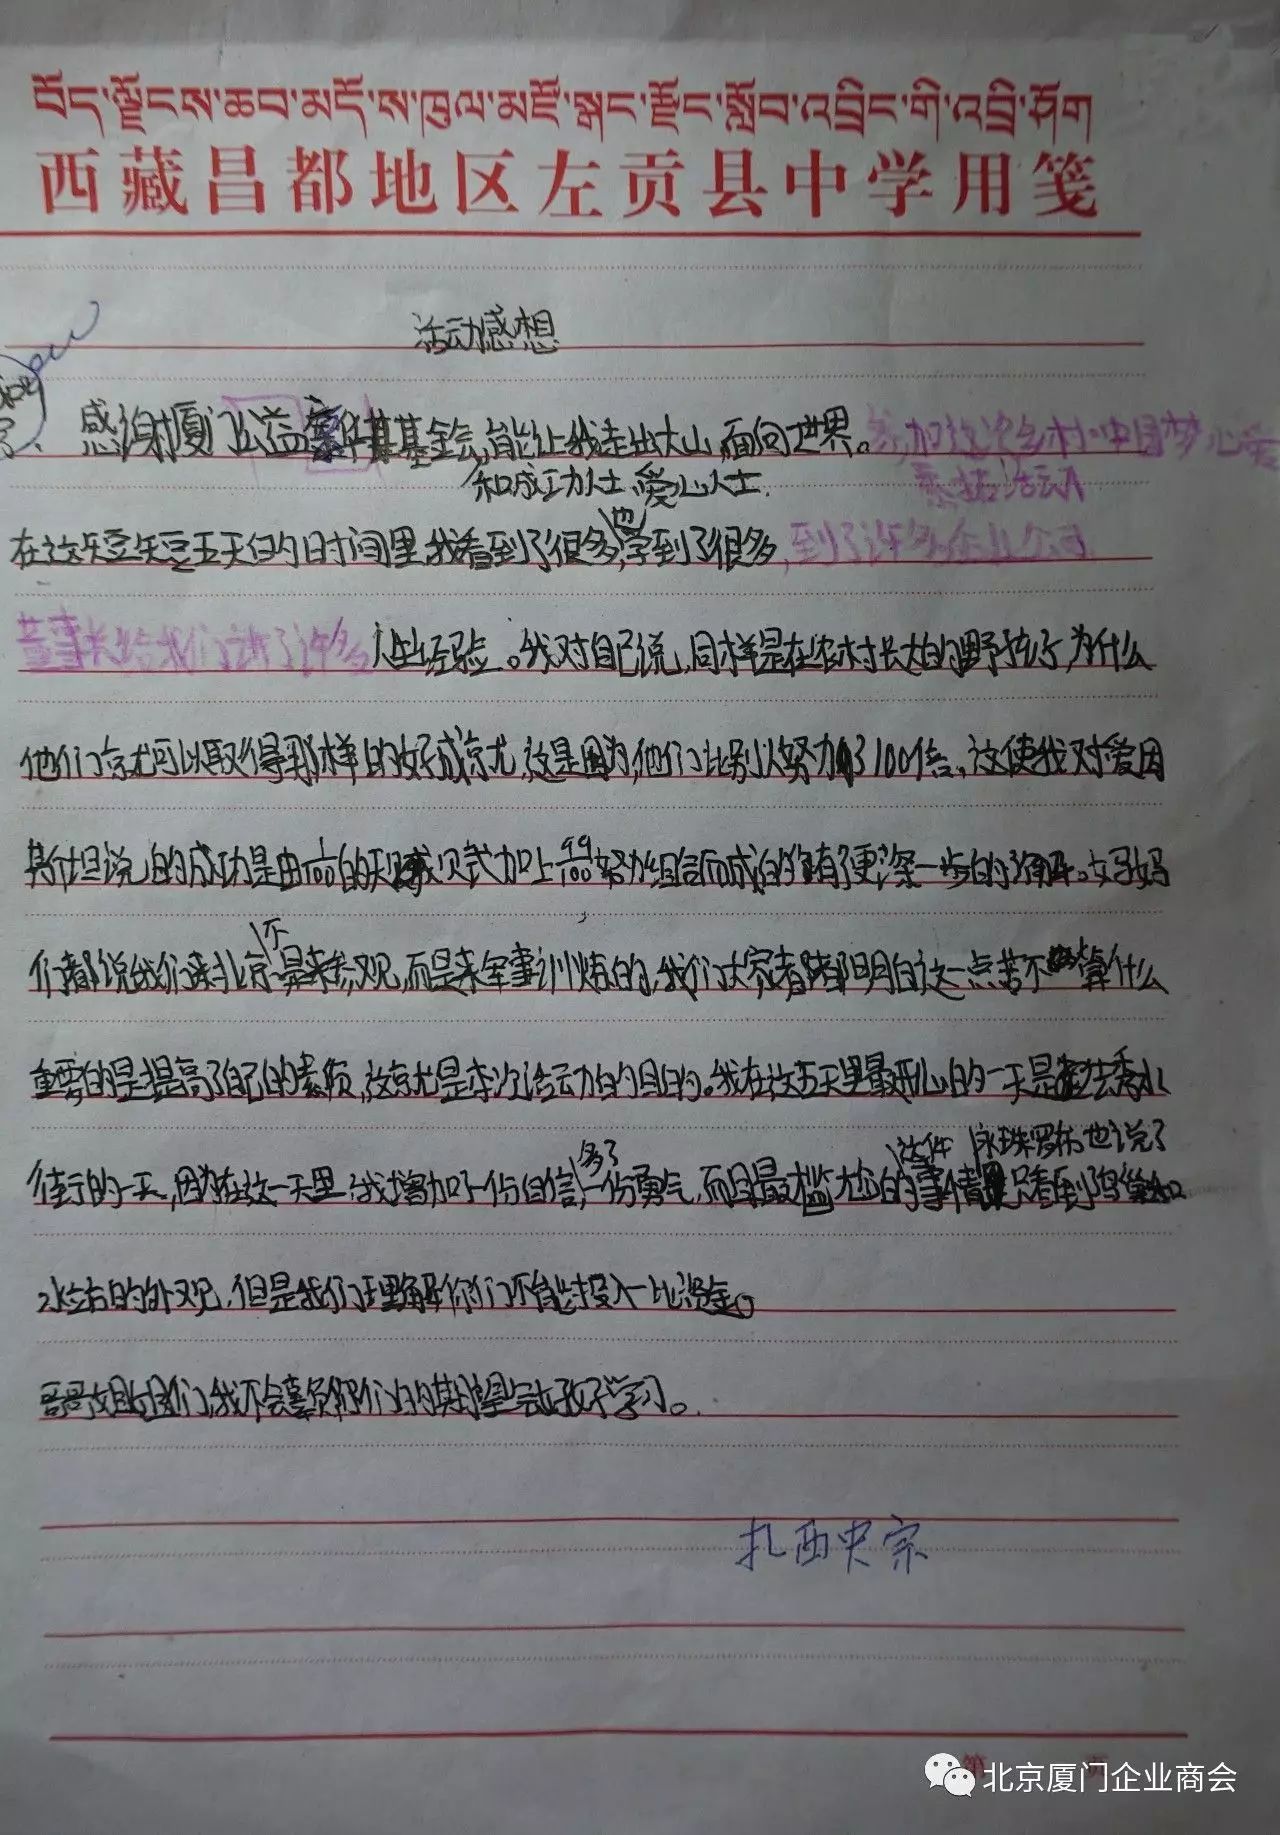 བོད་ལྗོངས་ཆབ་མདོ་ས་ཁུལ་མཛོ་སྒང་རྫོང་སློབ་འབྲིང་གི་འབྲི་ཤོག
西藏昌都地区左贡县中学用笺
活动感想
感谢厦门公益基金会,能让我走出大山,面向世界。参加这次乡村·中国梦心爱
和成功人士、爱心人士.
在这短短五天的时间里我看到了很多,也学到了很多,到了许多企业公司
董事长给我们讲了许多人生经验。我对自己说,同样是在农村长大的野孩子,为什么
他们就可以取得那样的好成就,这是因为,他们比别人努力了100倍。这使我对爱因
斯坦说的成功是由1/100的天赋加上99/100努力组合而成的有了更深一步的了解。妈妈
们都说我们来北京不是来参观,而是来军事训炼的,我们大家都明白这一点苦不算什么
重要的是提高了自己的素质,这就是本次活动的目的。我在这五天里最开心的一天是去秀水
街的一天,因为在这一天里,我增加了一份自信,多了一份勇气,而且最尴尬的这件事情是只看到鸟巢和
永珠罗布也说了
水立方的外观,但是我们理解你们不能投入一比资金。
哥哥姐姐们,我不会辜负你们的期望会好好学习。
扎西央宗
第 页
北京厦门企业商会